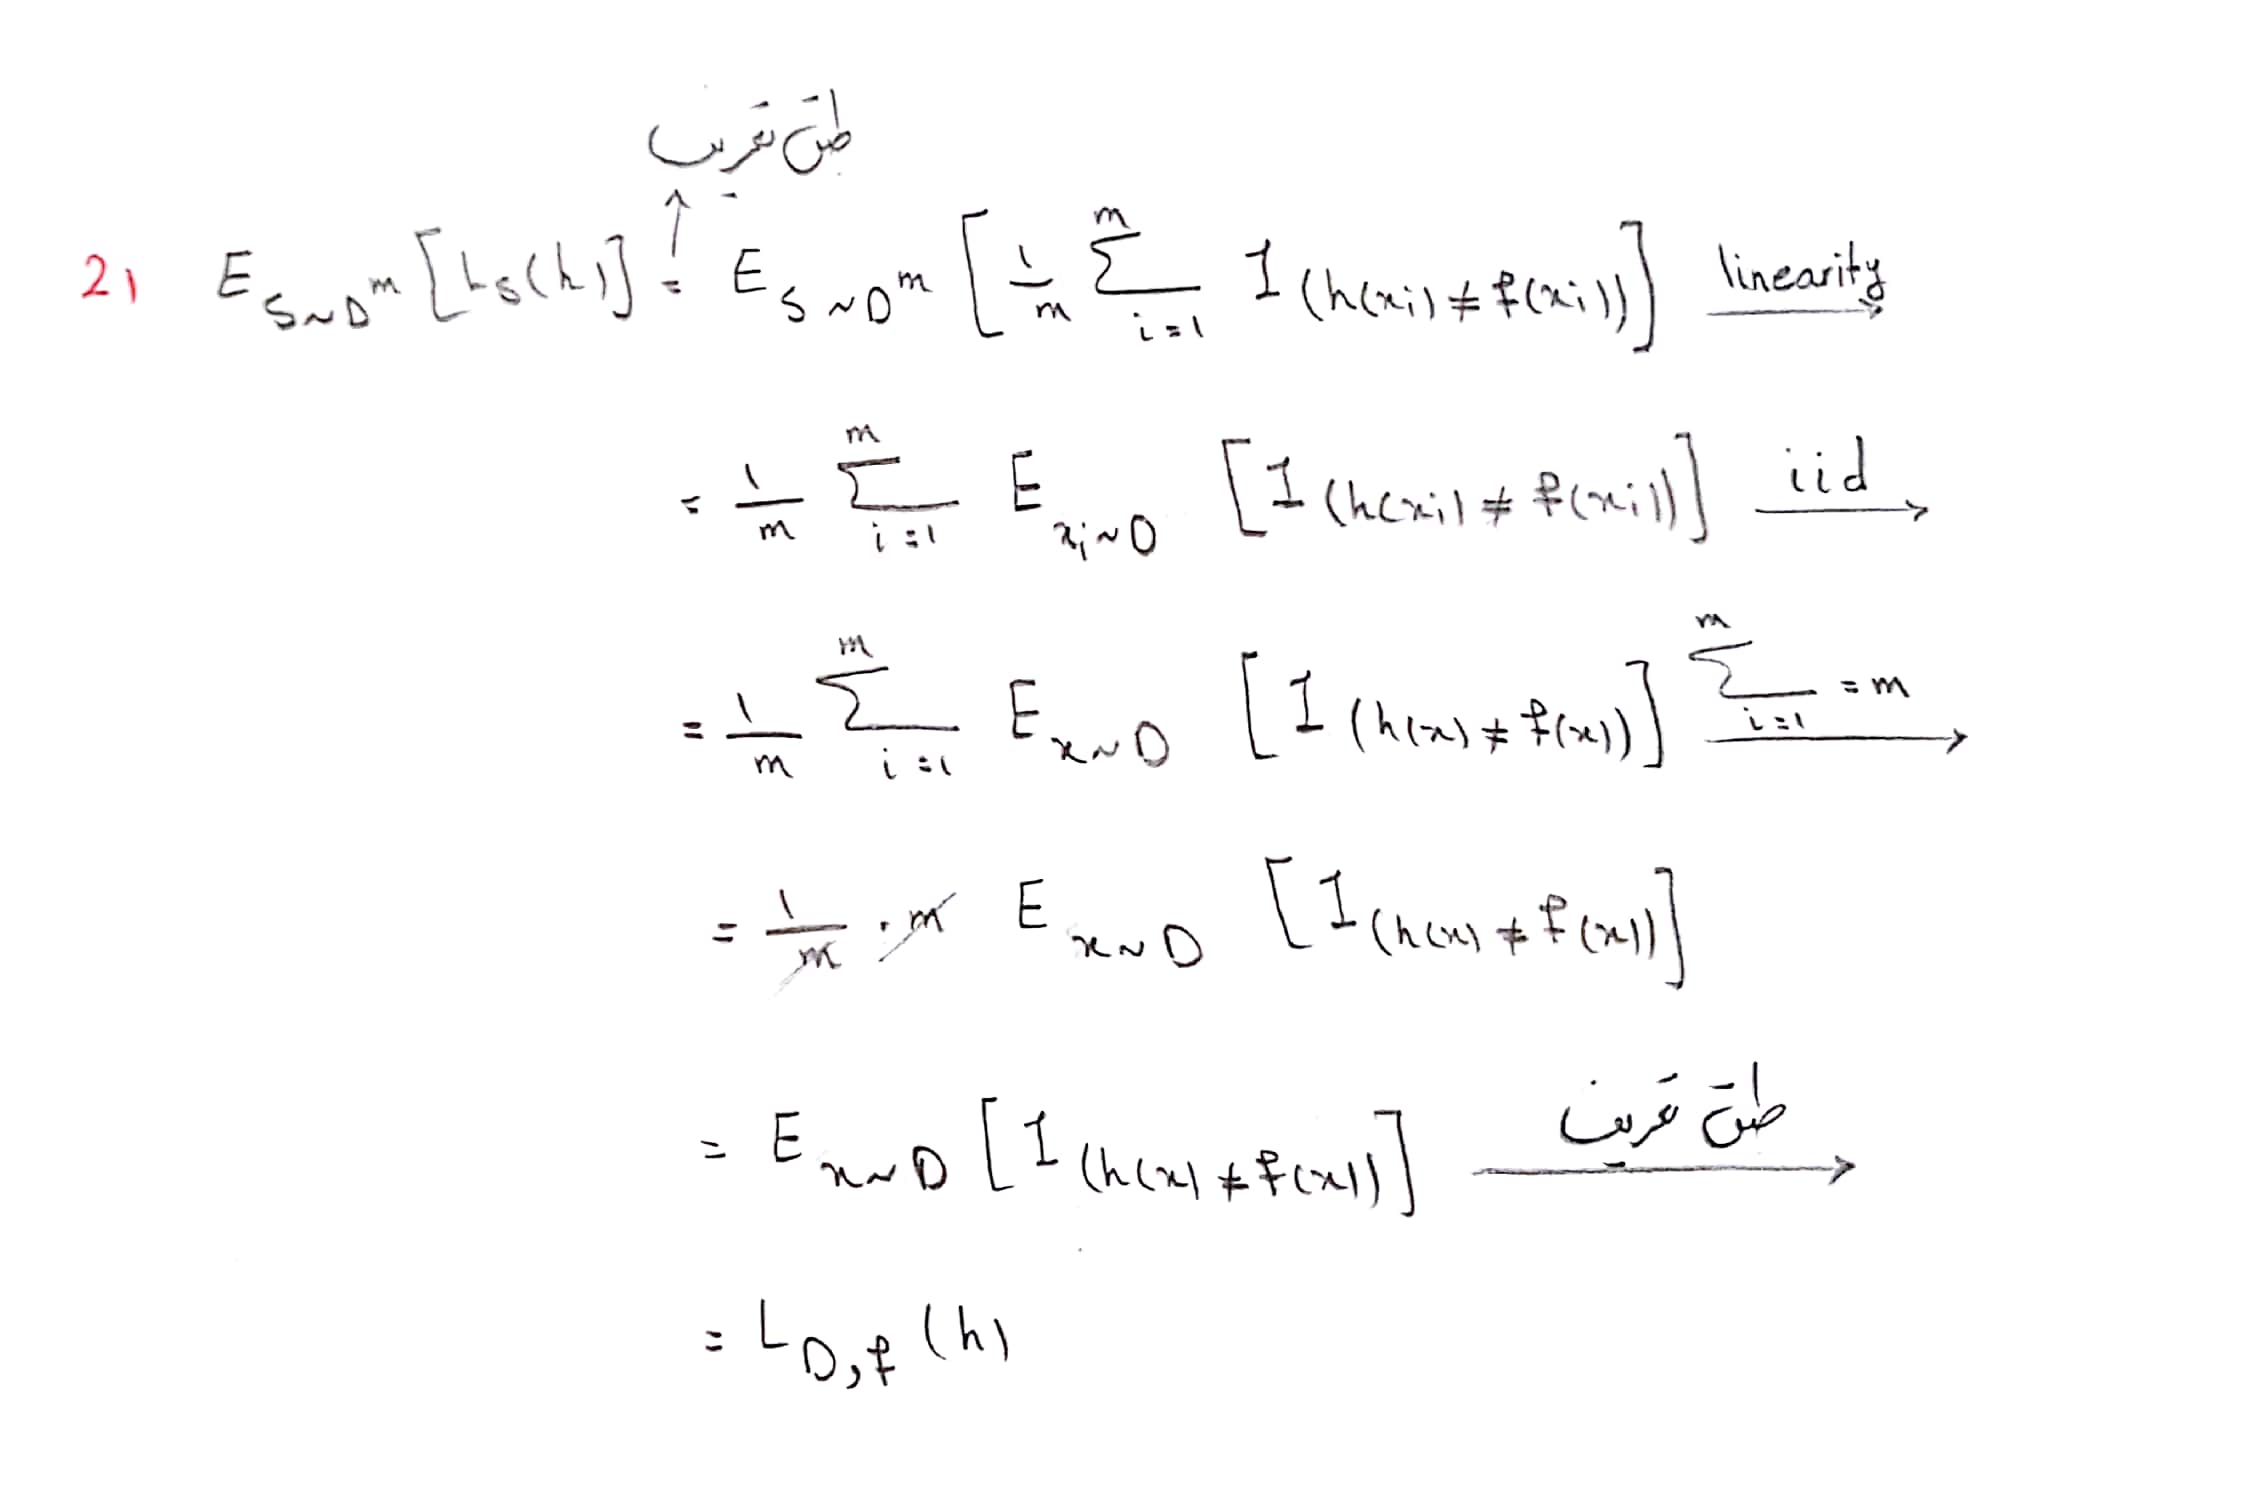 طبق تعریف
2) E_{S~D^m} [L_S(h)] = E_{S~D^m} [1/m Σ_{i=1}^{m} 1(h(xi) ≠ f(xi))] linearity →
= 1/m Σ_{i=1}^{m} E_{xi~D} [1(h(xi) ≠ f(xi))] iid →
= 1/m Σ_{i=1}^{m} E_{x~D} [1(h(x) ≠ f(x))] Σ_{i=1}^{m} = m →
= 1/m . m E_{x~D} [1(h(x) ≠ f(x))]
= E_{x~D} [1(h(x) ≠ f(x))] طبق تعریف →
= L_{D,f} (h)